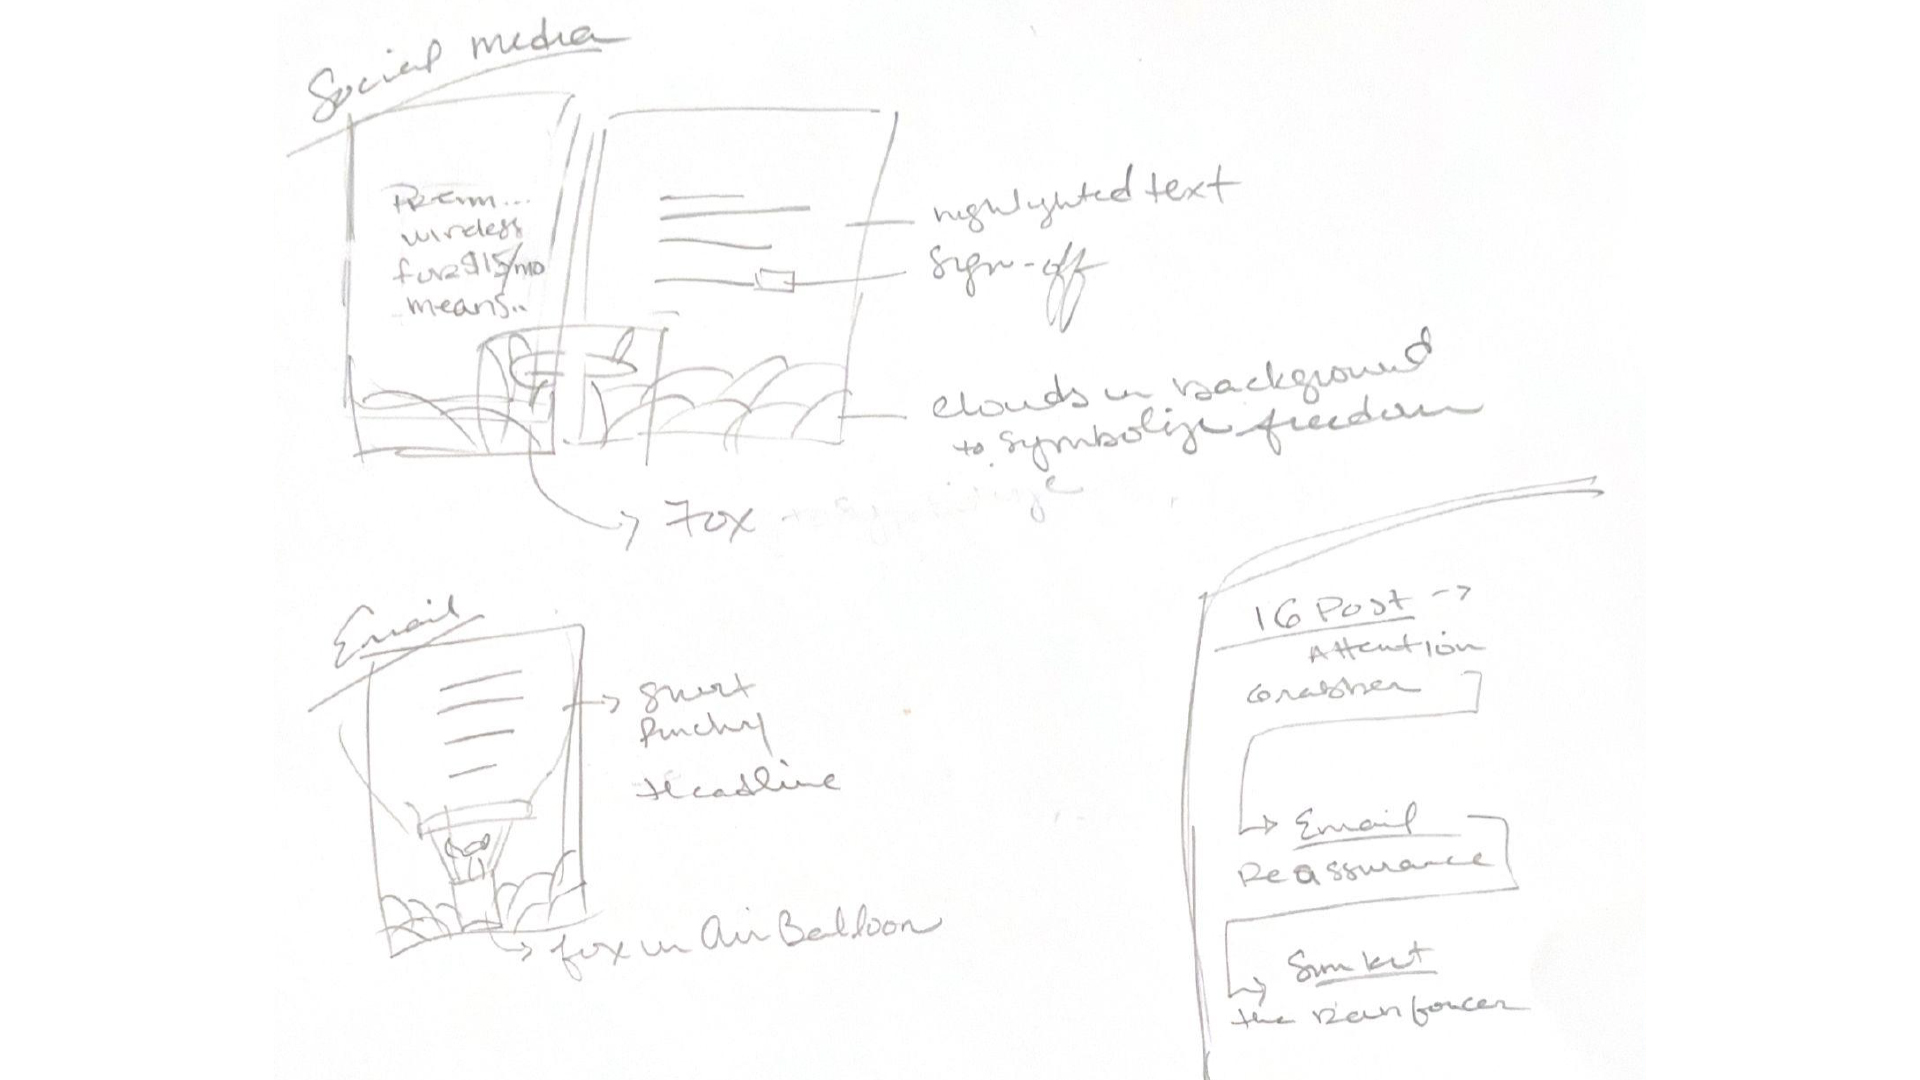 Social media
Prem...
wireless
for $15/mo
means..
highlighted text
Sign-off
clouds in background
to symbolize freedom
Fox
Email
short
Punchy
Headline
fox in Air Balloon
IG Post ->
Attention
Grabber
Email
Reassurance
Sim kit
the Reinforcer